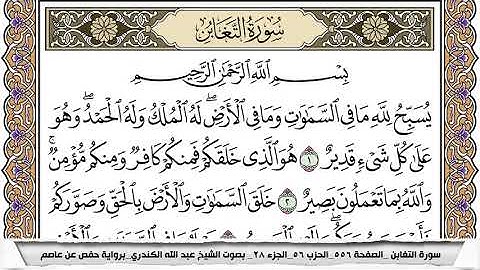 سُورَةُ التَّغَابُنِ
بِسْمِ اللَّهِ الرَّحْمَٰنِ الرَّحِيمِ
يُسَبِّحُ لِلَّهِ مَا فِي السَّمَٰوَٰتِ وَمَا فِي الْأَرْضِ ۖ لَهُ الْمُلْكُ وَلَهُ الْحَمْدُ ۖ وَهُوَ
عَلَىٰ كُلِّ شَيْءٍ قَدِيرٌ ١ هُوَ الَّذِي خَلَقَكُمْ فَمِنكُمْ كَافِرٌ وَمِنكُم مُّؤْمِنٌ ۚ
وَاللَّهُ بِمَا تَعْمَلُونَ بَصِيرٌ ٢ خَلَقَ السَّمَٰوَٰتِ وَالْأَرْضَ بِالْحَقِّ وَصَوَّرَكُمْ
سورة التغابن _ الصفحة ٥٥٦_ الحزب ٥٦_ الجزء ٢٨ _ بصوت الشيخ عبد الله الكندري_ برواية حفص عن عاصم